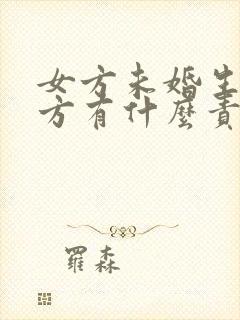 女方未婚生
方有什麼責
羅森